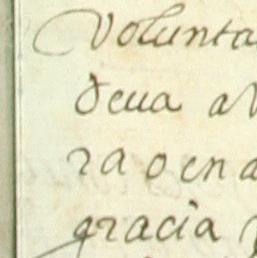 Volunta
deua a
ra o en a
gracia